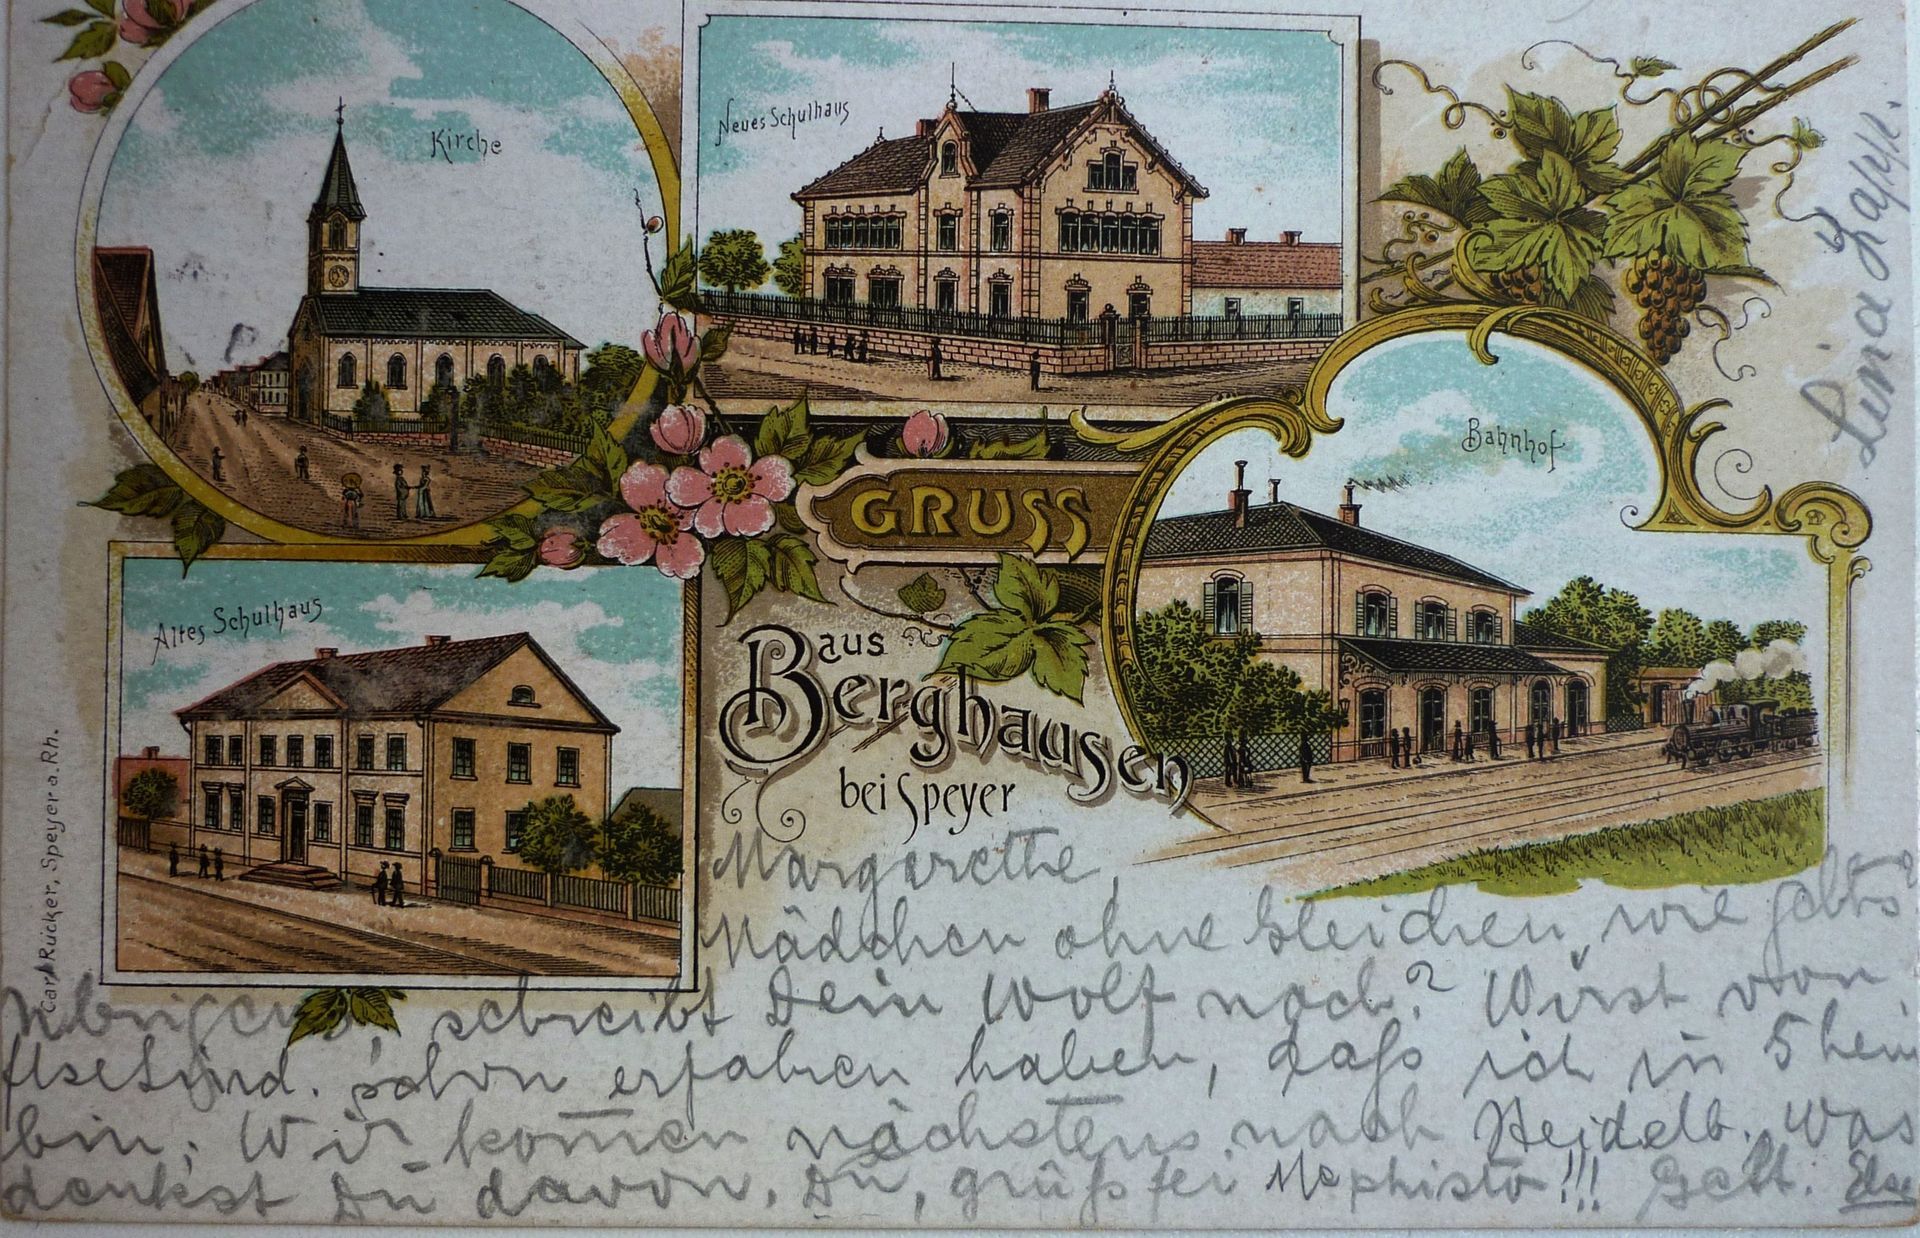 Kirche
Neues Schulhaus
Bahnhof
GRUSS
Altes Schulhaus
aus
Berghausen
bei Speyer
Carl Rücker, Speyer a. Rh.
Lina
Margarethe,
Mädchen ohne Gleichen, wie gehts?
Übrigens, schreibt Dein Wolf noch? Wirst von
schon erfahren haben, daß ich in
bin. Wir kom̅en nächstens nach Heidelb. Was
denkst Du davon. Du, grüß Mephisto!!! Gelt. Else